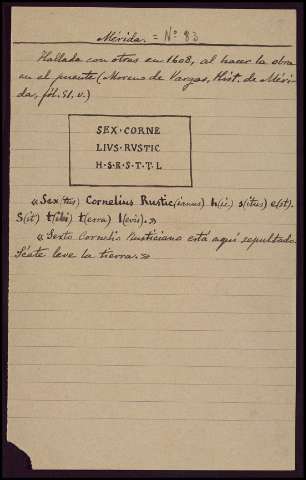 Mérida. = Nº 83
Hallada con otras en 1608, al hacer la obra
en el puente (Moreno de Vargas, Hist. de Méri-
da, fól. 51. v.)
SEX · CORNE
LIVS · RVSTIC
H · S · E · S · T · T · L
«Sex(tus) Cornelius Rustic(ianus) h(ic) s(itus) e(st).
S(it) t(ibi) t(erra) l(evis).»
«Sexto Cornelio Rusticiano está aquí sepultado.
Séate leve la tierra.»